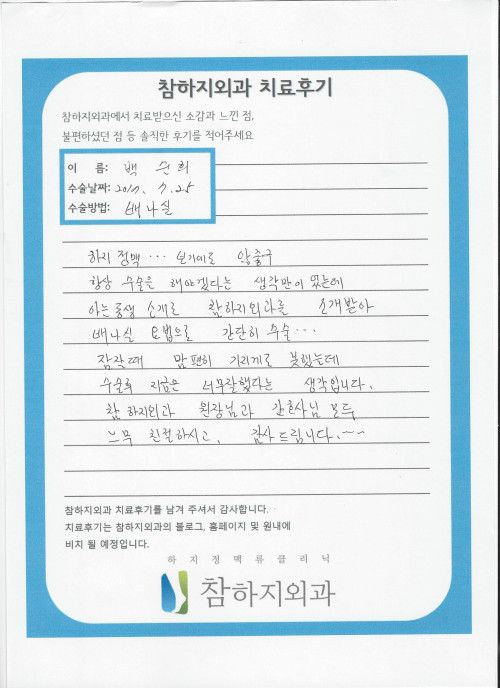 참하지외과 치료후기
참하지외과에서 치료받으신 소감과 느낀 점,
불편하셨던 점 등 솔직한 후기를 적어주세요
이 름: 백 순희
수술날짜: 2017. 7. 25
수술방법: 베나실
하지 정맥 ... 보기에도 안좋구
항상 수술은 해야겠다는 생각만이 있는데
아는동생 소개로 참하지외과를 소개받아
베나실 요법으로 간단히 수술...
잠잘때 맘편히 기리게로 못했는데
수술후 지금은 너무잘했다는 생각입니다.
참 하지외과 원장님과 간호사님 모두
느무 친절하시고, 감사드립니다.~~
참하지외과 치료후기를 남겨 주셔서 감사합니다.
치료후기는 참하지외과의 블로그, 홈페이지 및 원내에
비치 될 예정입니다.
하지정맥류클리닉
참하지외과